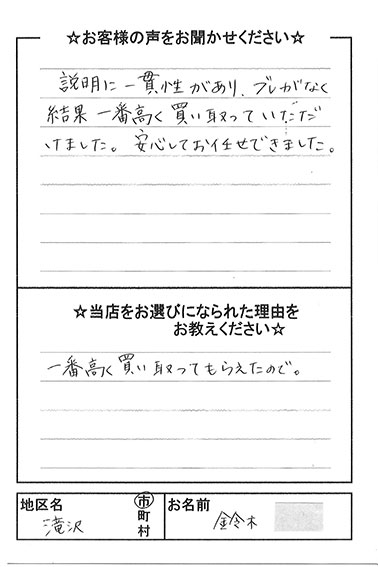 ☆お客様の声をお聞かせください☆
説明に一貫性があり、ブレがなく
結果一番高く買い取っていただ
けました。安心しておまかせできました。
☆当店をお選びになられた理由を
お教えください☆
一番高く買い取ってもらえたので。
地区名
滝沢
市
町
村
お名前
鈴木